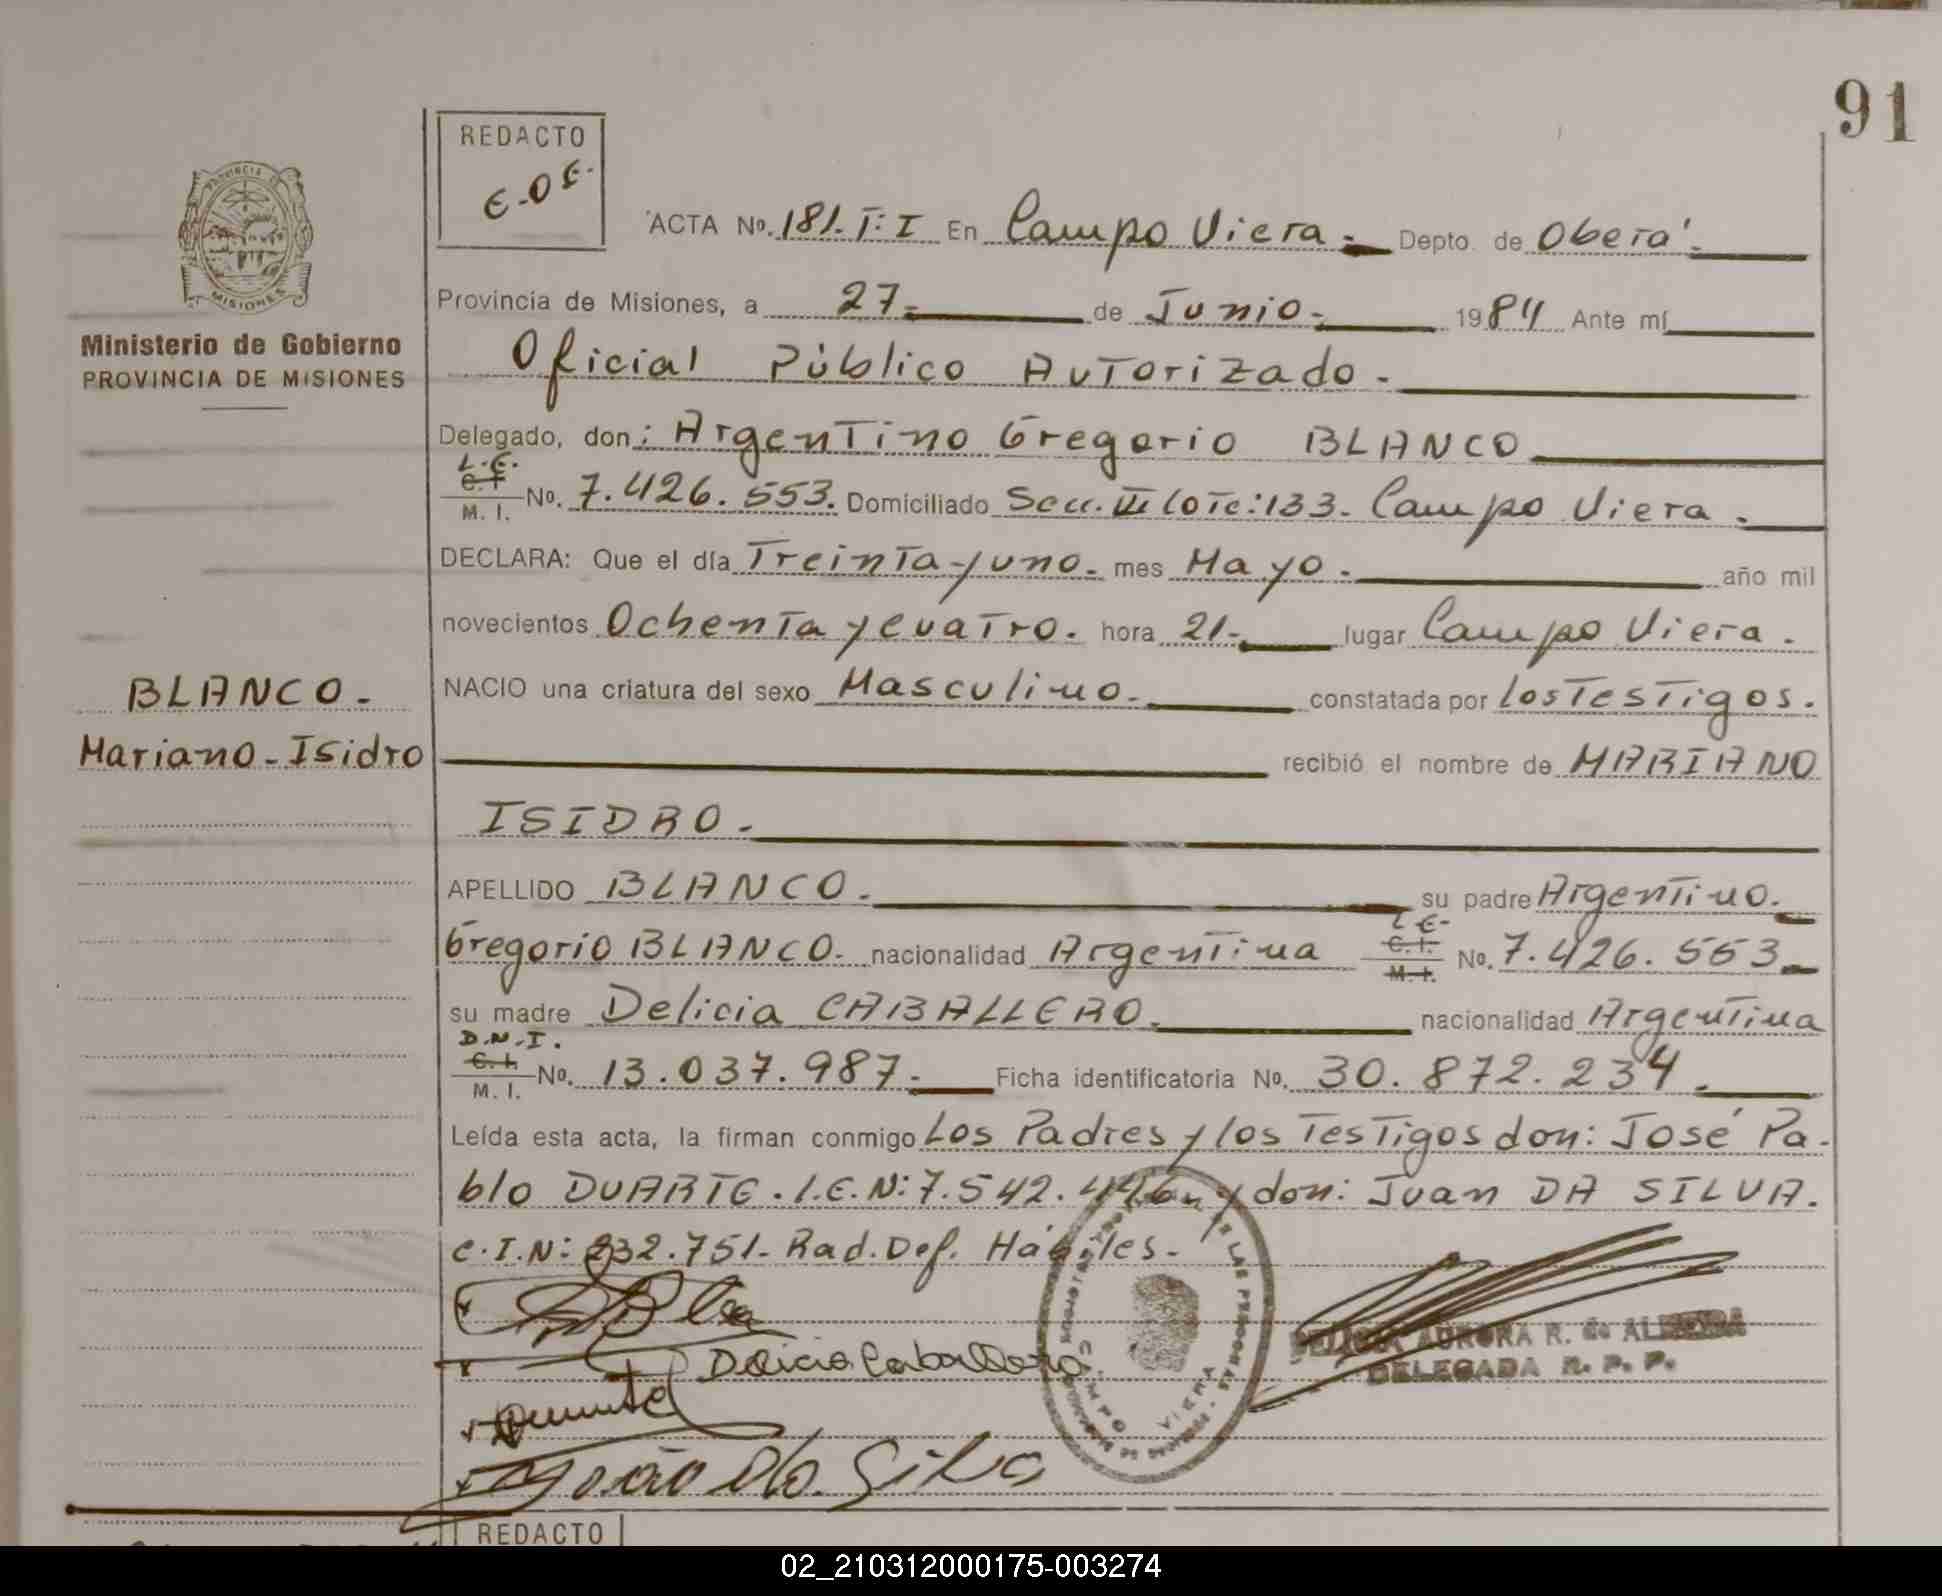 91
REDACTO
E.O.E.
PROVINCIA DE
MISIONES
Ministerio de Gobierno
PROVINCIA DE MISIONES
ACTA No. 181.T: I En Campo Viera.- Depto. de Oberá.
Provincia de Misiones, a 27. de Junio. 1984 Ante mí
Oficial Público Autorizado.
Delegado, don: Argentino Gregorio BLANCO
L.E.
C. I.
M. I.
No. 7.426.553. Domiciliado Secc. VII lote: 133. Campo Viera.
DECLARA: Que el día Treinta y uno. mes Mayo. año mil
novecientos Ochenta y cuatro. hora 21. lugar Campo Viera.
NACIO una criatura del sexo Masculino. constatada por los Testigos.
BLANCO.
Mariano - Isidro
recibió el nombre de MARIANO
ISIDRO.
APELLIDO BLANCO. su padre Argentino.
Gregorio BLANCO. nacionalidad Argentina L E. C. I. M. I. No. 7.426.553
su madre Delicia CABALLERO. nacionalidad Argentina
D.N.I.
C. I.
M. I.
No. 13.037.987. Ficha identificatoria No. 30.872.234.
Leída esta acta, la firman conmigo Los Padres y los Testigos don: José Pa-
blo DUARTE. L.E.N: 7.542.446. y don: Juan DA SILVA.
C.I.N: 232.751. Rad. Def. Hábiles.
Delicia Caballero
João da Silva
DE LAS PERSONAS
CAMPO VIERA
AURORA R. de ALMEIDA
DELEGADA R. P. P.
REDACTO
02_210312000175-003274